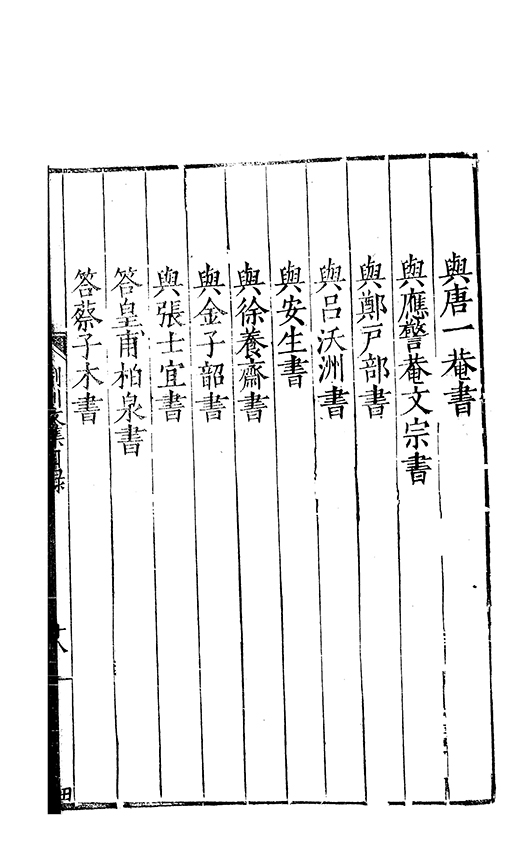 與唐一菴書
與應警菴文宗書
與鄭戸部書
與呂沃洲書
與安生書
與徐養齋書
與金子韶書
與張士宜書
答皇甫柏泉書
答蔡子木書
川文集目錄
十八